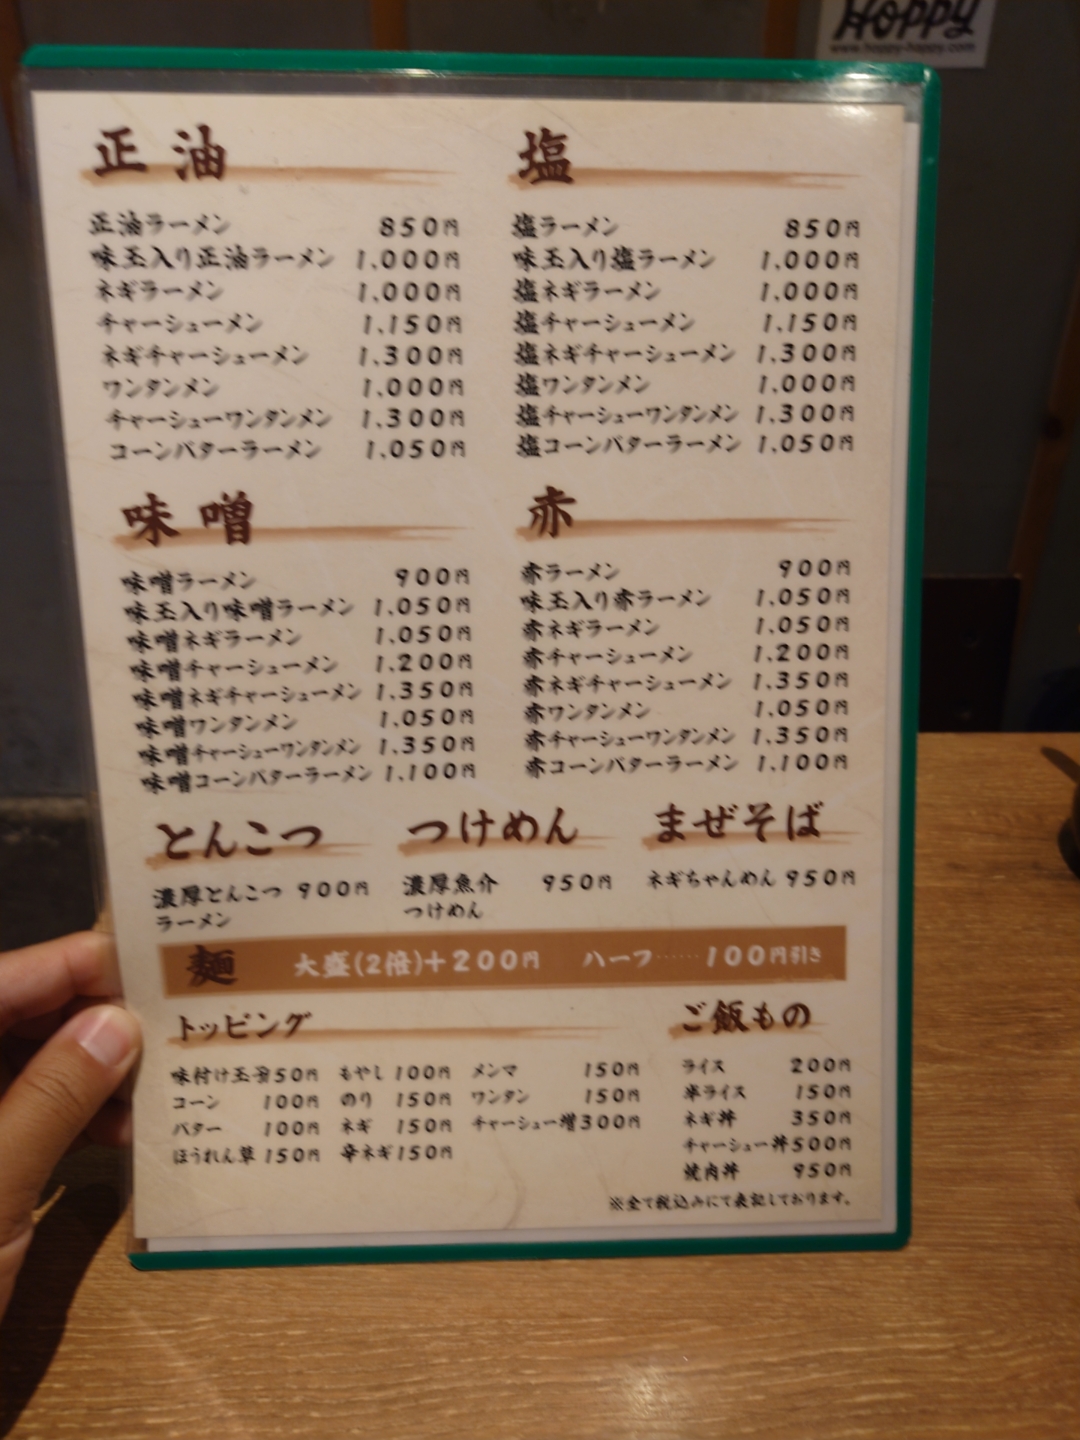 Hoppy
www.hoppy-happy.com
正油
正油ラーメン 850円
味玉入り正油ラーメン 1.000円
ネギラーメン 1.000円
チャーシューメン 1.150円
ネギチャーシューメン 1.300円
ワンタンメン 1.000円
チャーシューワンタンメン 1.300円
コーンバターラーメン 1.050円
塩
塩ラーメン 850円
味玉入り塩ラーメン 1.000円
塩ネギラーメン 1.000円
塩チャーシューメン 1.150円
塩ネギチャーシューメン 1.300円
塩ワンタンメン 1.000円
塩チャーシューワンタンメン 1.300円
塩コーンバターラーメン 1.050円
味噌
味噌ラーメン 900円
味玉入り味噌ラーメン 1.050円
味噌ネギラーメン 1.050円
味噌チャーシューメン 1.200円
味噌ネギチャーシューメン 1.350円
味噌ワンタンメン 1.050円
味噌チャーシューワンタンメン 1.350円
味噌コーンバターラーメン 1.100円
赤
赤ラーメン 900円
味玉入り赤ラーメン 1.050円
赤ネギラーメン 1.050円
赤チャーシューメン 1.200円
赤ネギチャーシューメン 1.350円
赤ワンタンメン 1.050円
赤チャーシューワンタンメン 1.350円
赤コーンバターラーメン 1.100円
とんこつ
濃厚とんこつ 900円
ラーメン
つけめん
濃厚魚介 950円
つけめん
まぜそば
ネギちゃんめん 950円
麺 大盛(2倍)+200円 ハーフ……100円引き
トッピング
味付け玉子 50円
コーン 100円
バター 100円
ほうれん草 150円
もやし 100円
のり 150円
ネギ 150円
辛ネギ 150円
メンマ 150円
ワンタン 150円
チャーシュー増 300円
ご飯もの
ライス 200円
半ライス 150円
ネギ丼 350円
チャーシュー丼 500円
焼肉丼 950円
※全て税込みにて表記しております。